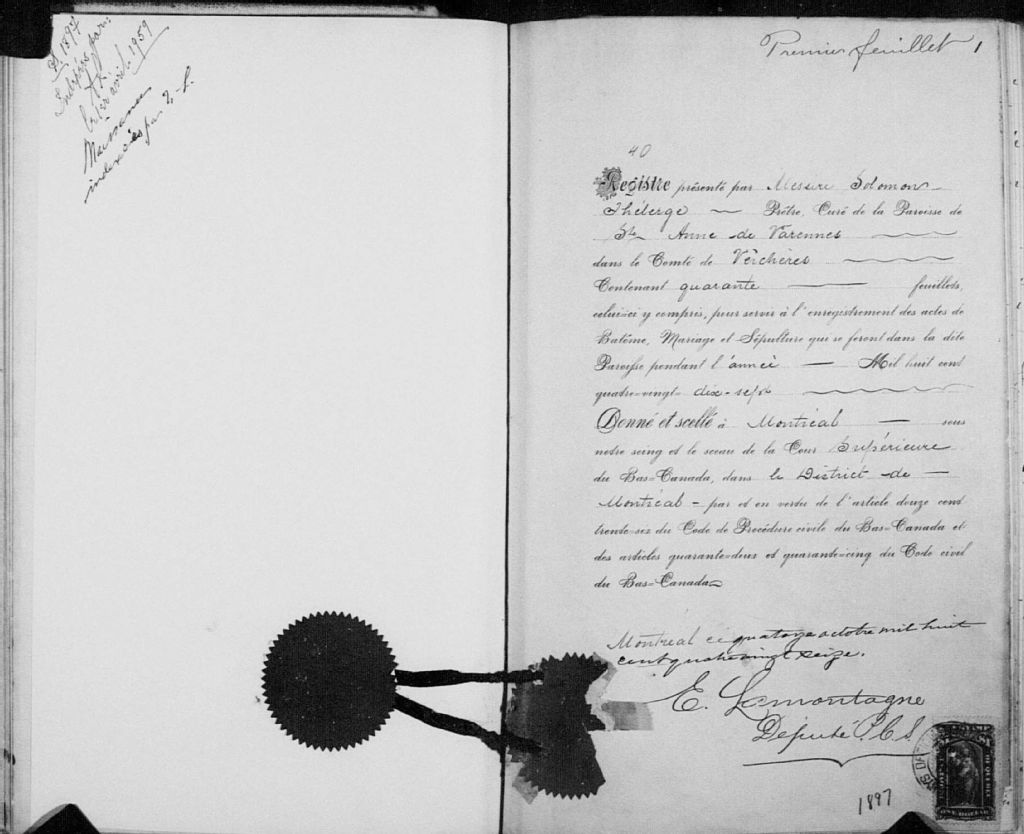 1897
avril 1959
Naissances
indexées par
Premier feuillet 1
40
Registre présenté par Messire Solomon
Théberge Prêtre, Curé de la Paroisse de
Ste Anne de Varennes
dans le Comté de Verchères
Contenant quarante feuillets,
celui-ci y compris, pour servir à l'enregistrement des actes de
Batême, Mariage et Sépulture qui se feront dans la dite
Paroisse pendant l'année — Mil huit cent
quatre-vingt-dix-sept
Donné et scellé à Montréal — sous
notre seing et le sceau de la Cour Supérieure
du Bas-Canada, dans le District de —
Montréal - par et en vertu de l'article douze cent
trente-six du Code de Procédure civile du Bas-Canada et
des articles quarante-deux et quarante-cinq du Code civil
du Bas-Canada
Montréal ce quatorze octobre mil huit
cent quatrevingt seize.
E. Lamontagne
Député P.C.S
1897
ONE DOLLAR